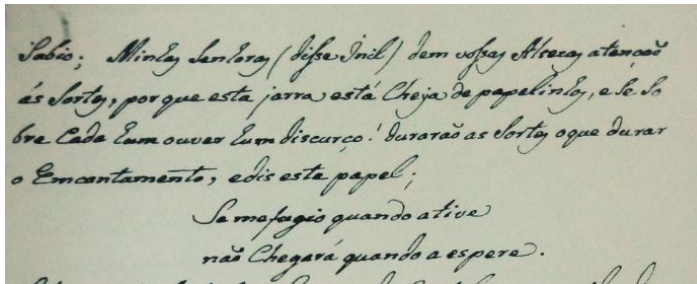 Sabio; Minhas Senhoras (disse Inil) dem vossas Altezas atencaõ
ás Sortes, por que esta jarra está Cheja de papelinhos, e se So
bre Cada hum ouver hum discurço! durarão as Sortes o que durar
o Emcantamento, e dis este papel;
Se me fugio quando a tive
naõ Chegará quando a espere.